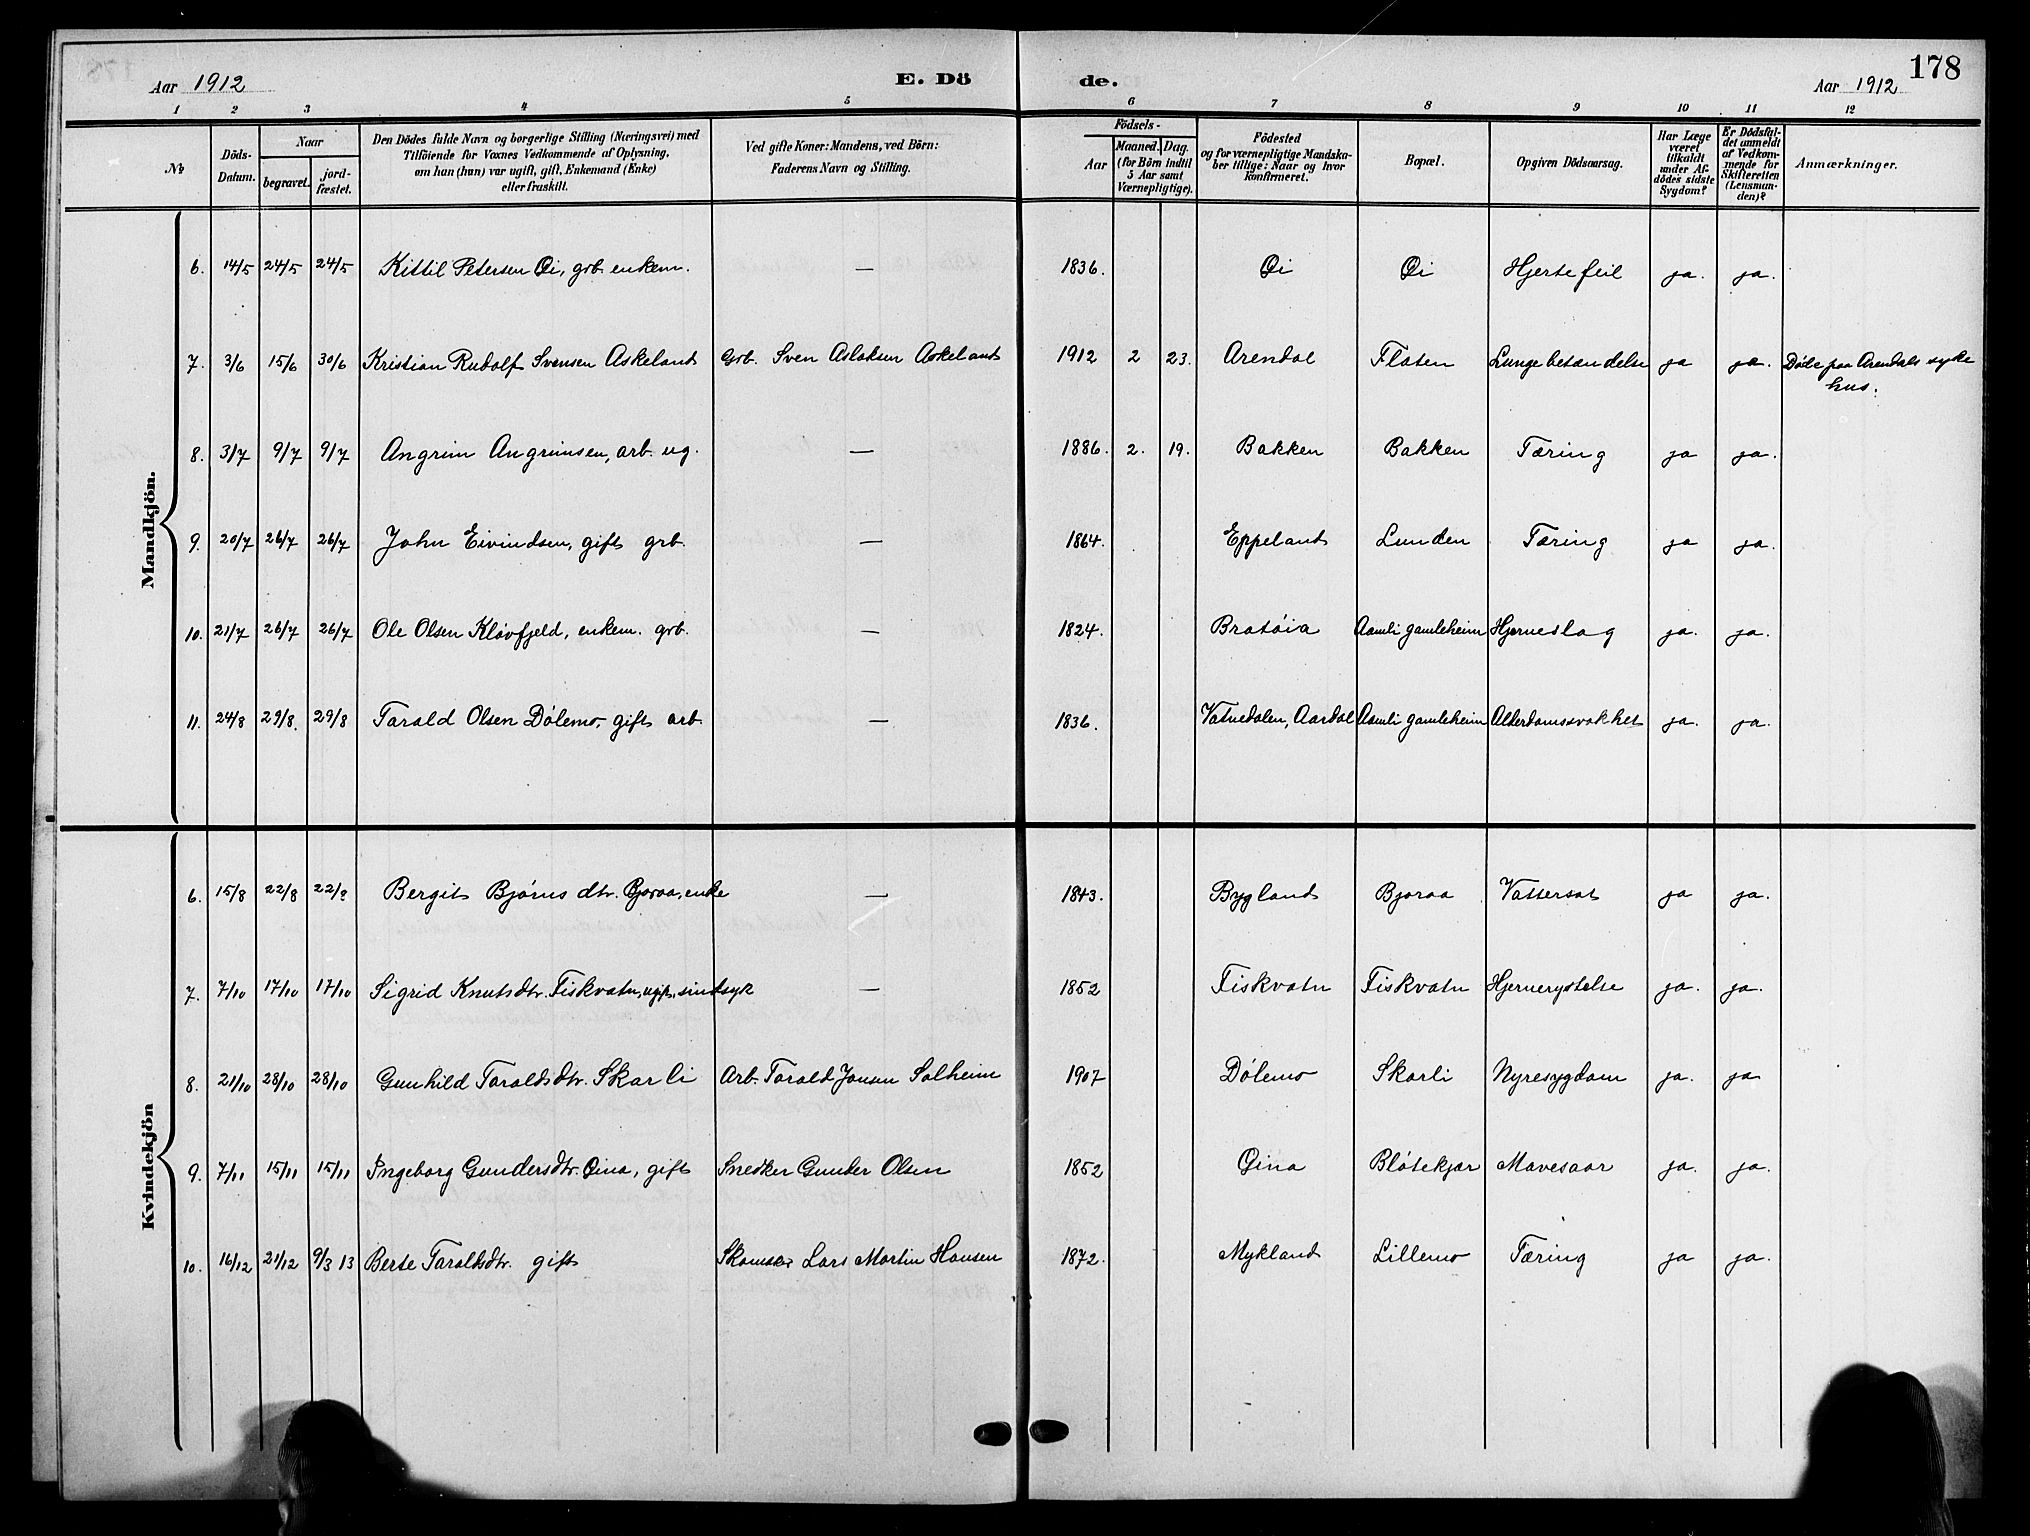 Aar 1912 E. Dö de. Aar 1912 178
1 2 3 4 5 6 7 8 9 10 11 12
№ Döds-Datum. Naar begravet. jord-fæstet. Den Dödes fulde Navn og borgerlige Stilling (Næringsvei) med Tilföiende for Voxnes Vedkommende af Oplysning, om han (hun) var ugift, gift, Enkemand (Enke) eller fraskilt. Ved gifte Koner: Mandens, ved Börn: Faderens Navn og Stilling. Födsels- Aar Maaned. Dag. (for Börn indtil 5 Aar samt Værnepligtige). Födested og for værnepligtige Mandska-ber tillige: Naar og hvor konfirmeret. Bopæl. Opgiven Dödsaarsag. Har Læge været tilkaldt under Af-dödes sidste Sygdom? Er Dödsfal-det anmeldt af Vedkom-mende for Skifteretten (Lensman-den)? Anmærkninger.
Mandkjön.
6. 14/5 24/5 24/5 Kittil Petersen Øi, grb. enkem. — 1836. Øi Øi Hjertefeil ja. ja.
7. 3/6 15/6 30/6 Kristian Rudolf Svensen Askeland Grb. Sven Aslaksen Askeland 1912 2 23. Arendal Flaten Lungebetændelse ja ja. Døde paa Arendals syke
hus.
8. 3/7 9/7 9/7 Angrim Angrimsen, arb. ug. — 1886. 2. 19. Bakken Bakken Tæring ja ja.
9. 20/7 26/7 26/7 John Eivindsen, gift grb. — 1864. Eppeland Lunden Tæring ja ja.
10. 21/7 26/7 26/7 Ole Olsen Kløvfjeld, enkem. grb. — 1824. Bratøia Aamli gamleheim Hjerneslag ja. ja.
11. 24/8 29/8. 29/8 Tarald Olsen Dølemo, gift arb. — 1836. Vatnedalen, Aardal Aamli gamleheim Alderdomssvakhet ja. ja.
Kvindekjön
6. 15/8 22/8 22/8 Bergit Bjørns dtr. Bjoraa, enke — 1843. Bygland Bjoraa Vattersot ja ja.
7. 7/10 17/10 17/10 Sigrid Knutsdtr. Fiskvatn, ugift, sindsyk — 1852 Fiskvatn Fiskvatn Hjernerystelse ja. ja.
8. 21/10 28/10 28/10 Gunhild Taraldsdtr. Skarli Arb. Tarald Jonsen Solheim 1907 Dølemo Skarli Nyresygdom ja. ja
9. 7/11 15/11 15/11 Ingeborg Gundersdtr. Øina, gift Snedker Gunder Olsen 1852 Øina Bløtekjær Mavesaar ja. ja.
10. 16/12 21/12 9/3 13 Berte Taraldsdtr. gift Skomaker Lars Martin Hansen 1872. Mykland Lillemo Tæring ja ja.